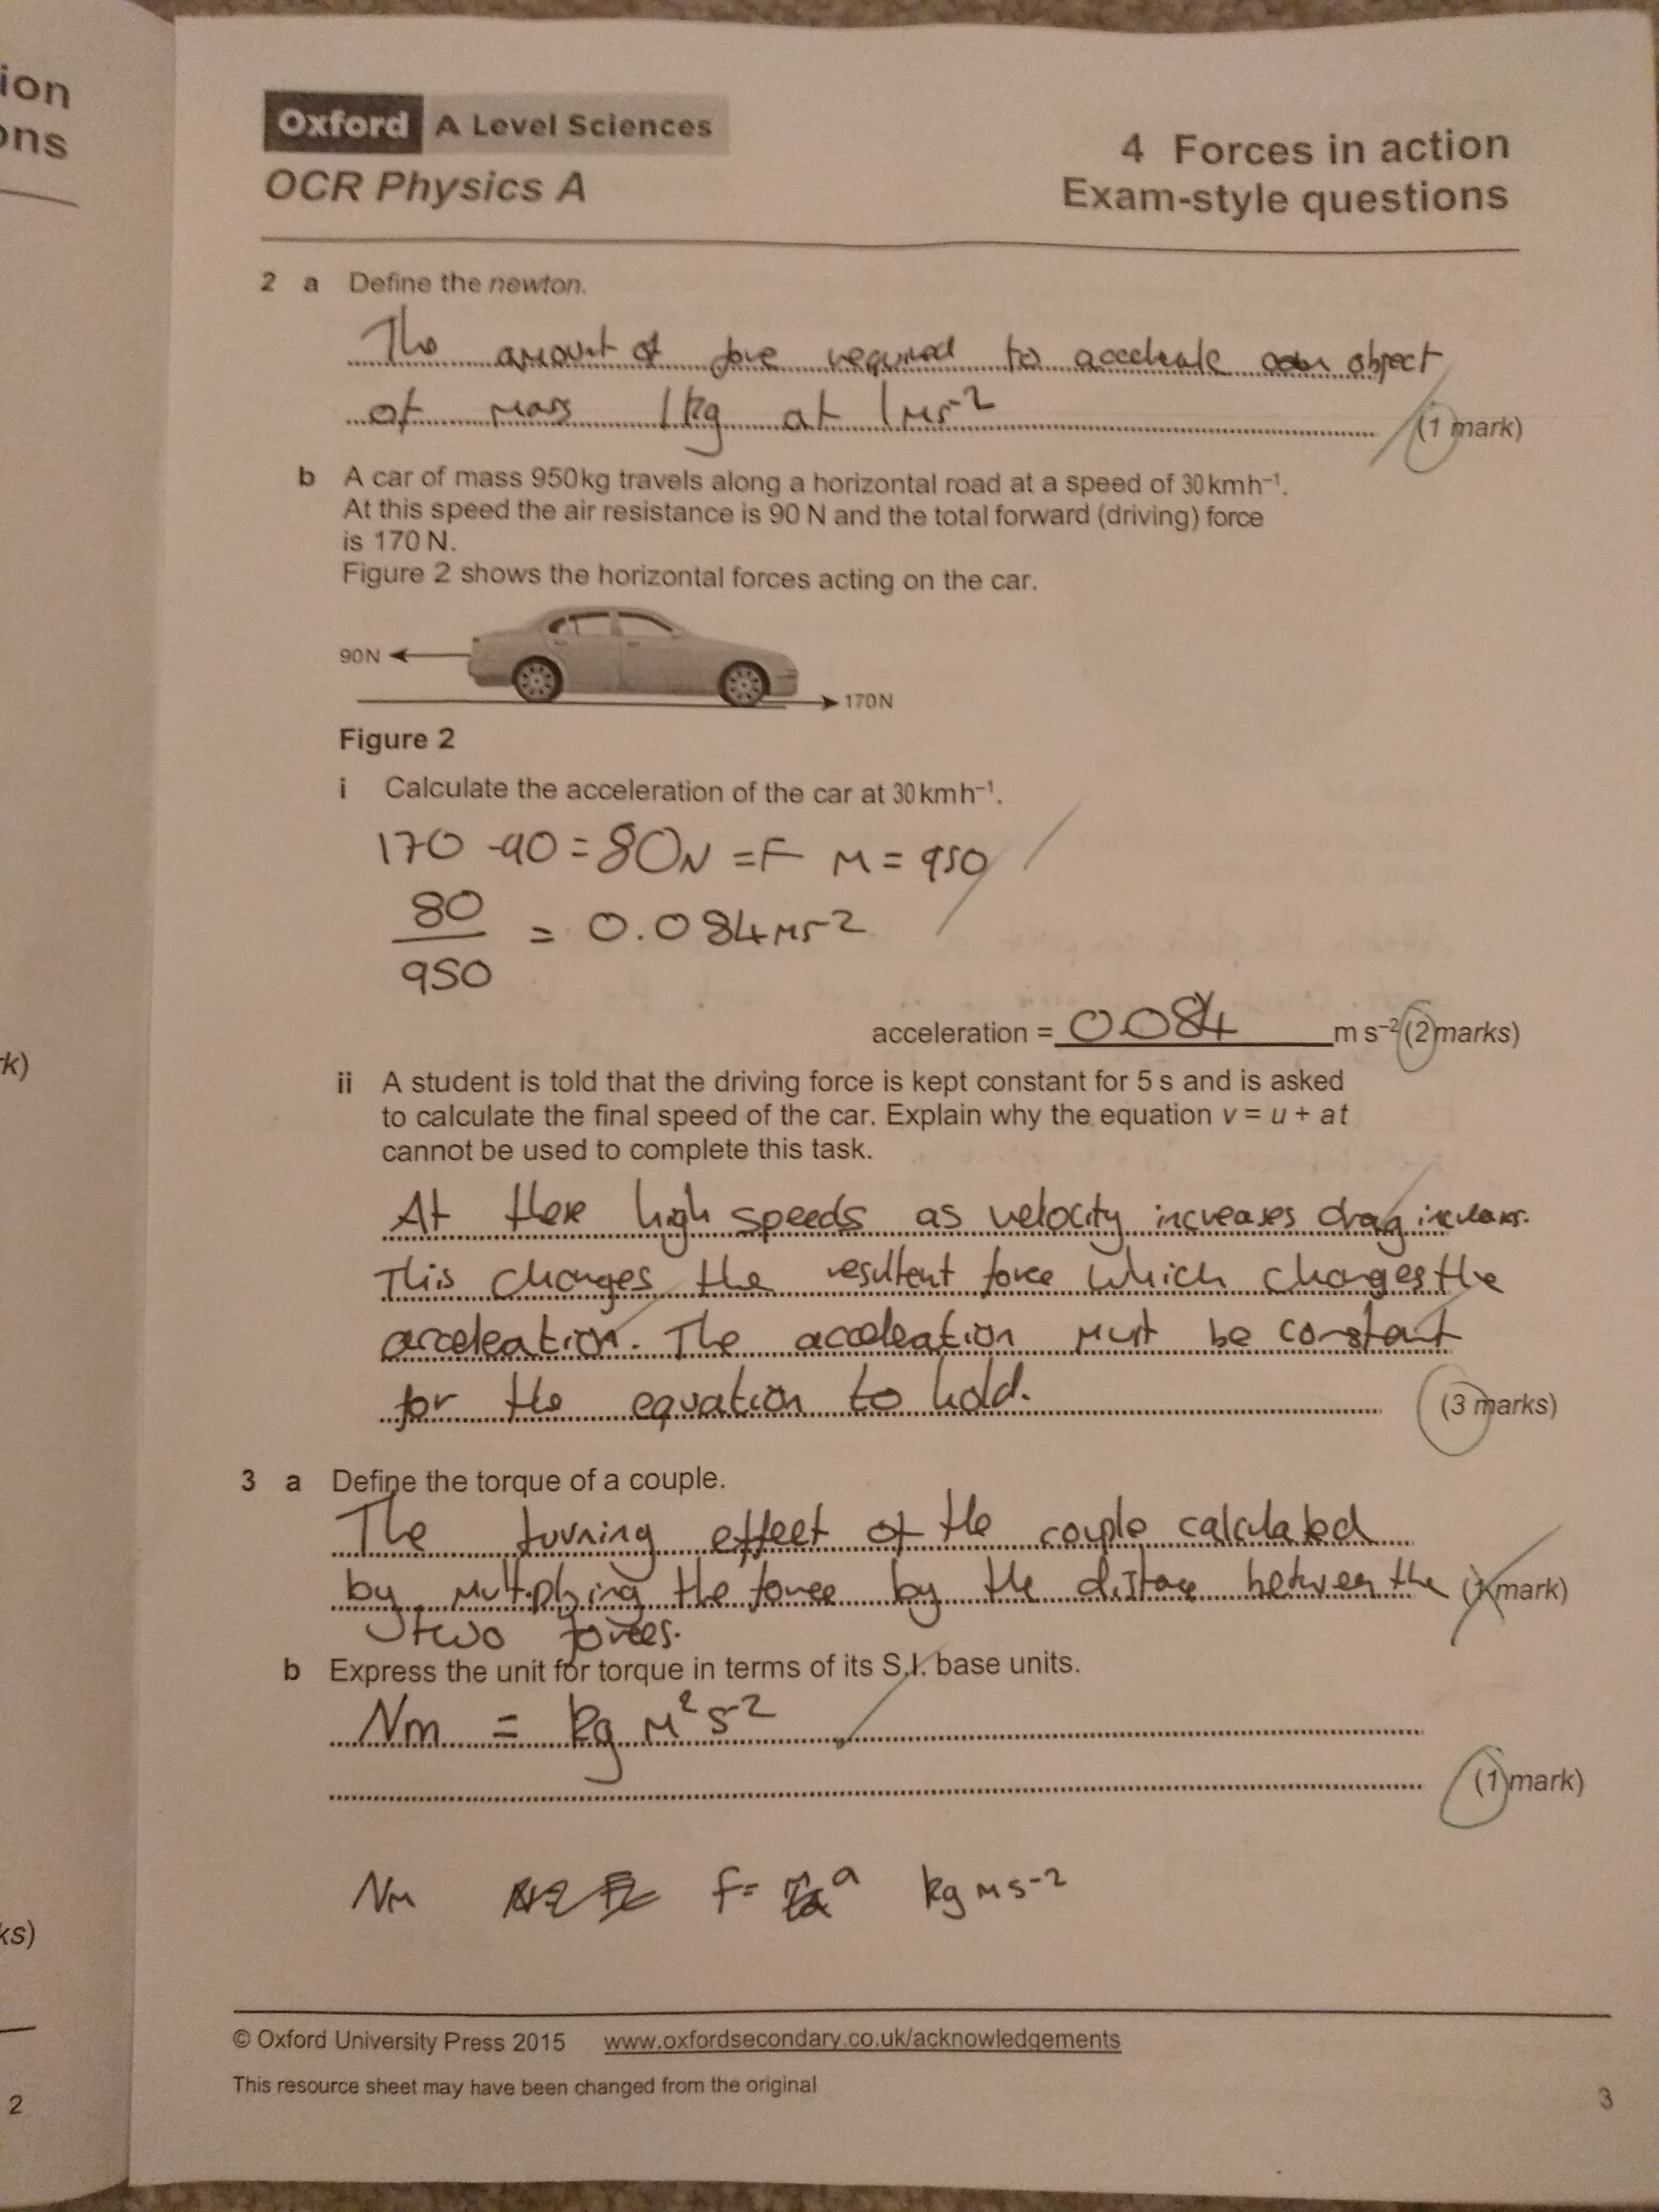 ion
ons
k)
ks)
2
Oxford A Level Sciences
OCR Physics A
4 Forces in action
Exam-style questions
2 a Define the newton.
The amount of force required to accelerate an object
of mass 1kg at 1ms-2
(1 mark)
b A car of mass 950 kg travels along a horizontal road at a speed of 30 km h⁻¹.
At this speed the air resistance is 90 N and the total forward (driving) force
is 170 N.
Figure 2 shows the horizontal forces acting on the car.
90 N
170 N
Figure 2
i Calculate the acceleration of the car at 30 km h⁻¹.
170 - 90 = 80N = F M = 950
80
950
= 0.084 ms-2
acceleration = 0.084 m s⁻² (2 marks)
ii A student is told that the driving force is kept constant for 5 s and is asked
to calculate the final speed of the car. Explain why the equation v = u + at
cannot be used to complete this task.
At these high speeds as velocity increases drag increases.
This changes the resultent force which changes the
acceleation. The acceleation must be constant
for the equation to hold.
(3 marks)
3 a Define the torque of a couple.
The turning effect of the couple calculated
by multiplying the force by the distace between the (1 mark)
two forces.
b Express the unit for torque in terms of its S.I. base units.
Nm = kg m² s-2
(1 mark)
Nm F= a kg m s-2
© Oxford University Press 2015 www.oxfordsecondary.co.uk/acknowledgements
This resource sheet may have been changed from the original
3